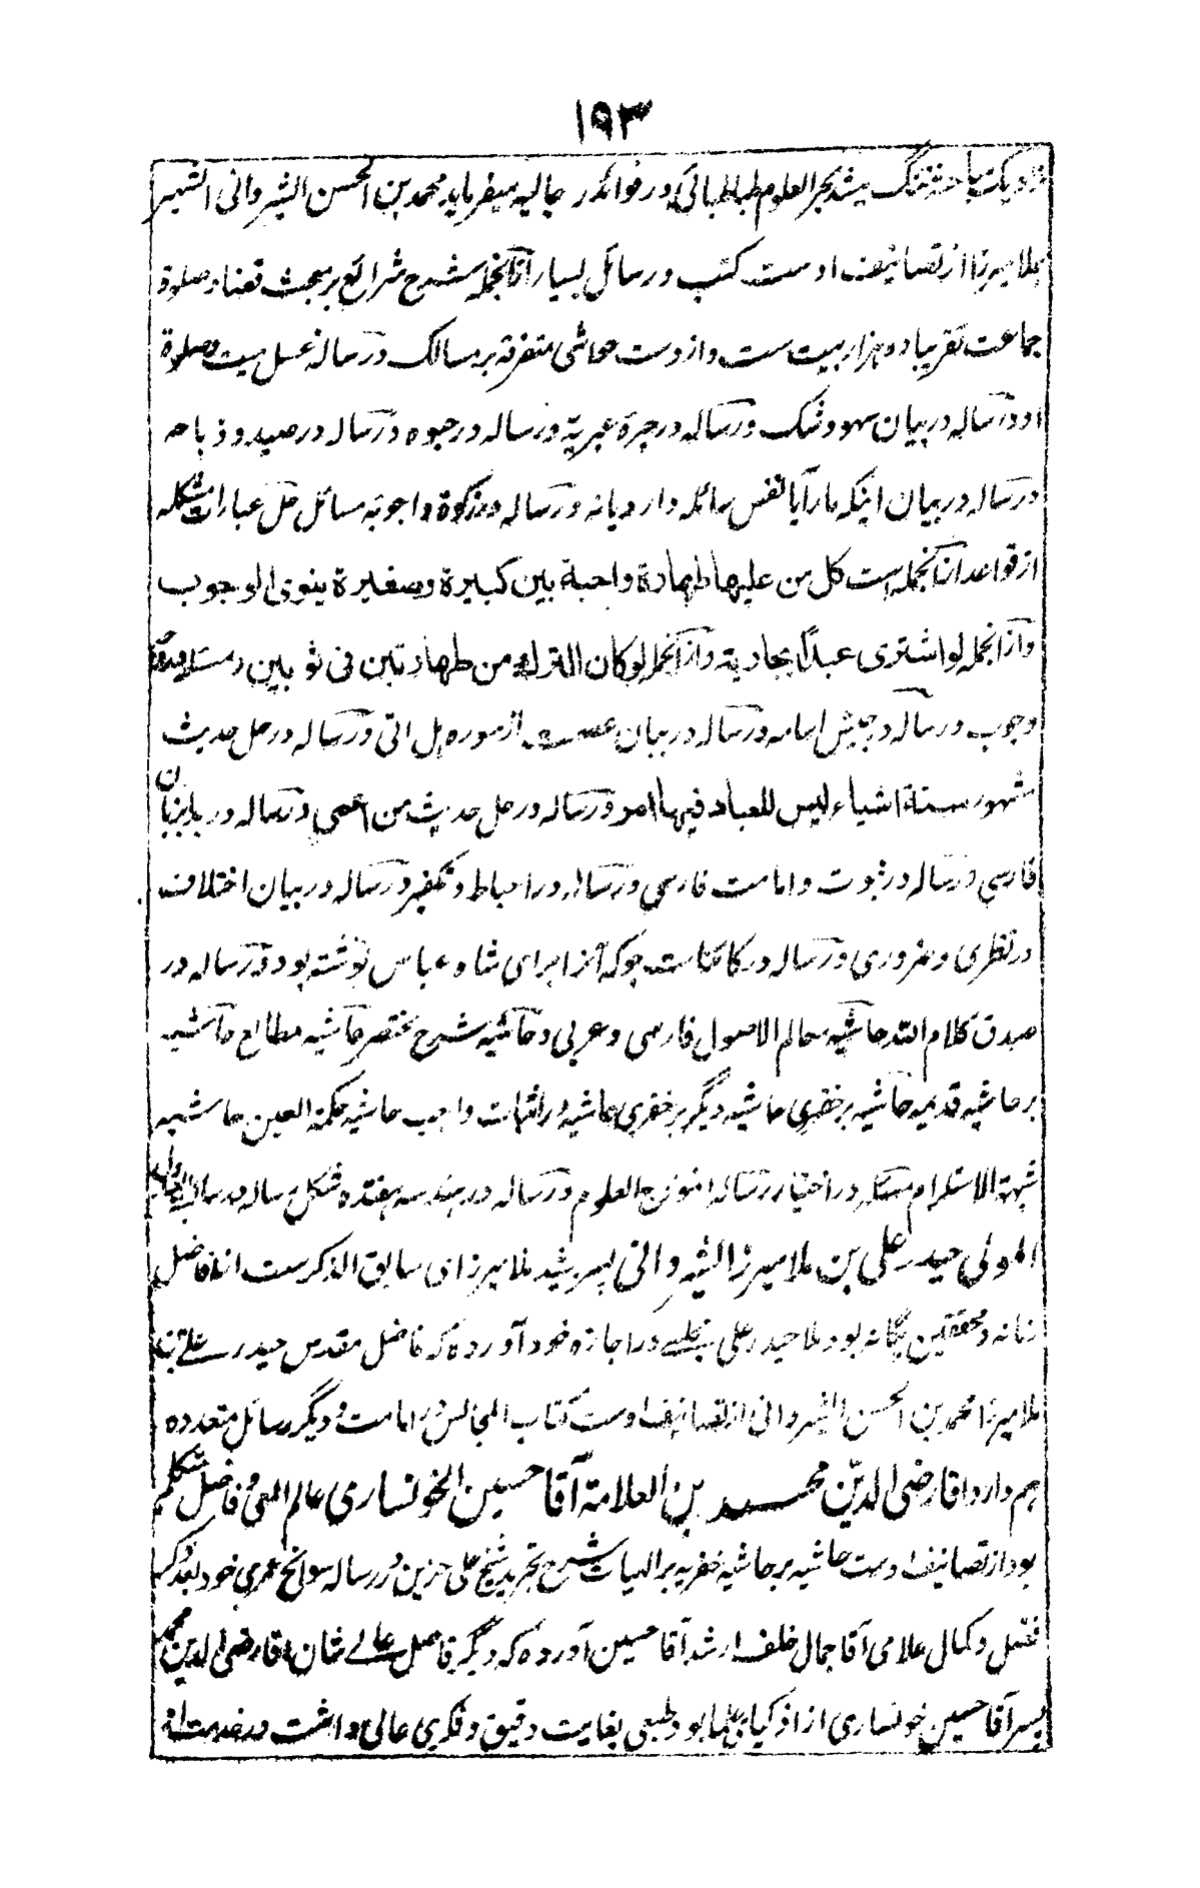 ۱۹۳
نزدیک بیاحثه تنگ میشد بحر العلوم طباطبائی در فوائد رجالیه میفرماید محمد بن الحسن الشیروانی الشهیر
بملا میرزا از تصانیف اوست کتب و رسائل بسیار ازانجمله شرح شرائع بر مبحث قضا و صلوة
جماعت تقریبا دو هزار بیت ست و ازوست حواشی متفرقه بر مسالک و رساله غسل میت و صلوة
او و رساله در بیان سهو و شک و رساله در جبره عبریّه و رساله در حبوه و رساله در صید و ذباحه
و رساله در بیان اینکه مار آیا نفس سائله دارد یا نه و رساله در زکوة و اجوبه مسائل حل عبارات مشکله
از قواعد ازانجمله است کل من علیها طهارة واجبة بین کبیرة وصغیرة ینوی الوجوب
و ازانجمله لو اشتری عبدًا بجاریة و ازانجمله لوکان الترک من طهارتین فی ثوبین و مسئله مقدمه
وجوب و رساله در جیش اسامه و رساله در بیان عصمت از سوره هل اتی و رساله در حل حدیث
مشهور ستة اشیاء لیس للعباد فیها امر و رساله در حل حدیث من اعصی و رساله در بدا بزبان
فارسی و رساله در نبوت و امامت فارسی و رساله در احباط و تکفیر و رساله در بیان اختلاف
در نظری و ضروری و رساله در کائنات جو که آنرا برای شاه عباس نوشته بود و رساله در
صدق کلام الله حاشیه معالم الاصول فارسی و عربی و حاشیه شرح مختصر حاشیه مطالع حاشیه
بر حاشیه قدیمه حاشیه بر خفری حاشیه دیگر بر خفری حاشیه در اثبات واجب حاشیه حکمة العین حاشیه
شبهة الاستلزام مسئله در اختیار رساله انموزج العلوم و رساله در هندسه هفتده شکل رساله در
المولی حیدر علی بن ملا میرزا الشیروانی پسر رشید ملا میرزای سابق الذکرست از افاضل
زمانه و محققین یگانه بود ملا حیدر علی مجلسی در اجازه خود آورده که فاضل مقدس حیدر علی بن
ملا میرزا محمد بن الحسن الشیروانی از تصانیف اوست کتاب المجالس در امامت و دیگر رسائل متعدده
هم دارد اقا رضی الدّین محمد بن العلامة آقا حسین الخونساری عالم المعی و فاضل متکلم
بود از تصانیف اوست حاشیه بر حاشیه خفریه بر الهیات شرح تجرید شیخ علی حزین در رساله سوانح عمری خود بعد ذکر
فضل و کمال علامی آقا جمال خلف ارشد آقا حسین آورده که دیگر فاضل عالے شان اقا رضی الدین محمد
پسر آقا حسین خونساری از اذکیای علما بود طبعی بغایت دقیق و فکری عالی داشت در خدمت او